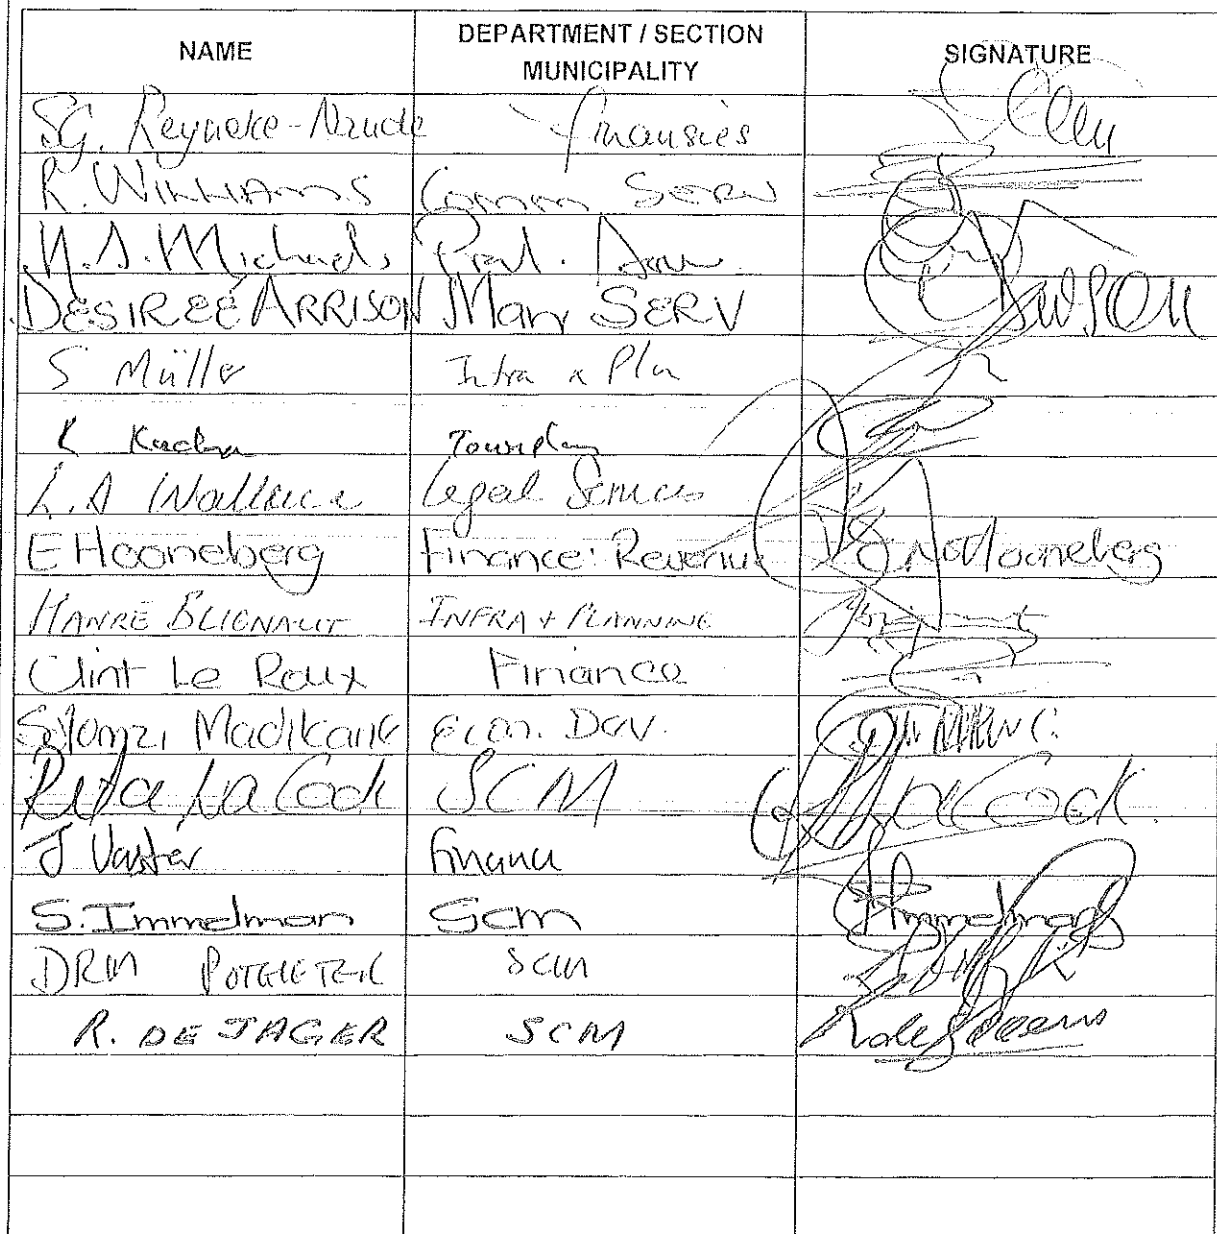 NAME DEPARTMENT / SECTION MUNICIPALITY SIGNATURE
SG. Reyneke-Naude finansies
R. WILLIAMS Comm Serv
Michaels
DESIREÉ ARRISON Man SERV
S Müller Infra & Plan
K Townplan
L.A Wallace Legal Services
E Hooneberg Finance: Revenue Hooneberg
HANRÉ BLIGNAUT INFRA + PLANNING
Clint Le Roux Finance
Econ. Dev.
Rita La Cock SCM La Cock.
J Vaster Finance
S. Immelman Scm Immelman
DRM POTGIETER SCM
R. DE JAGER SCM